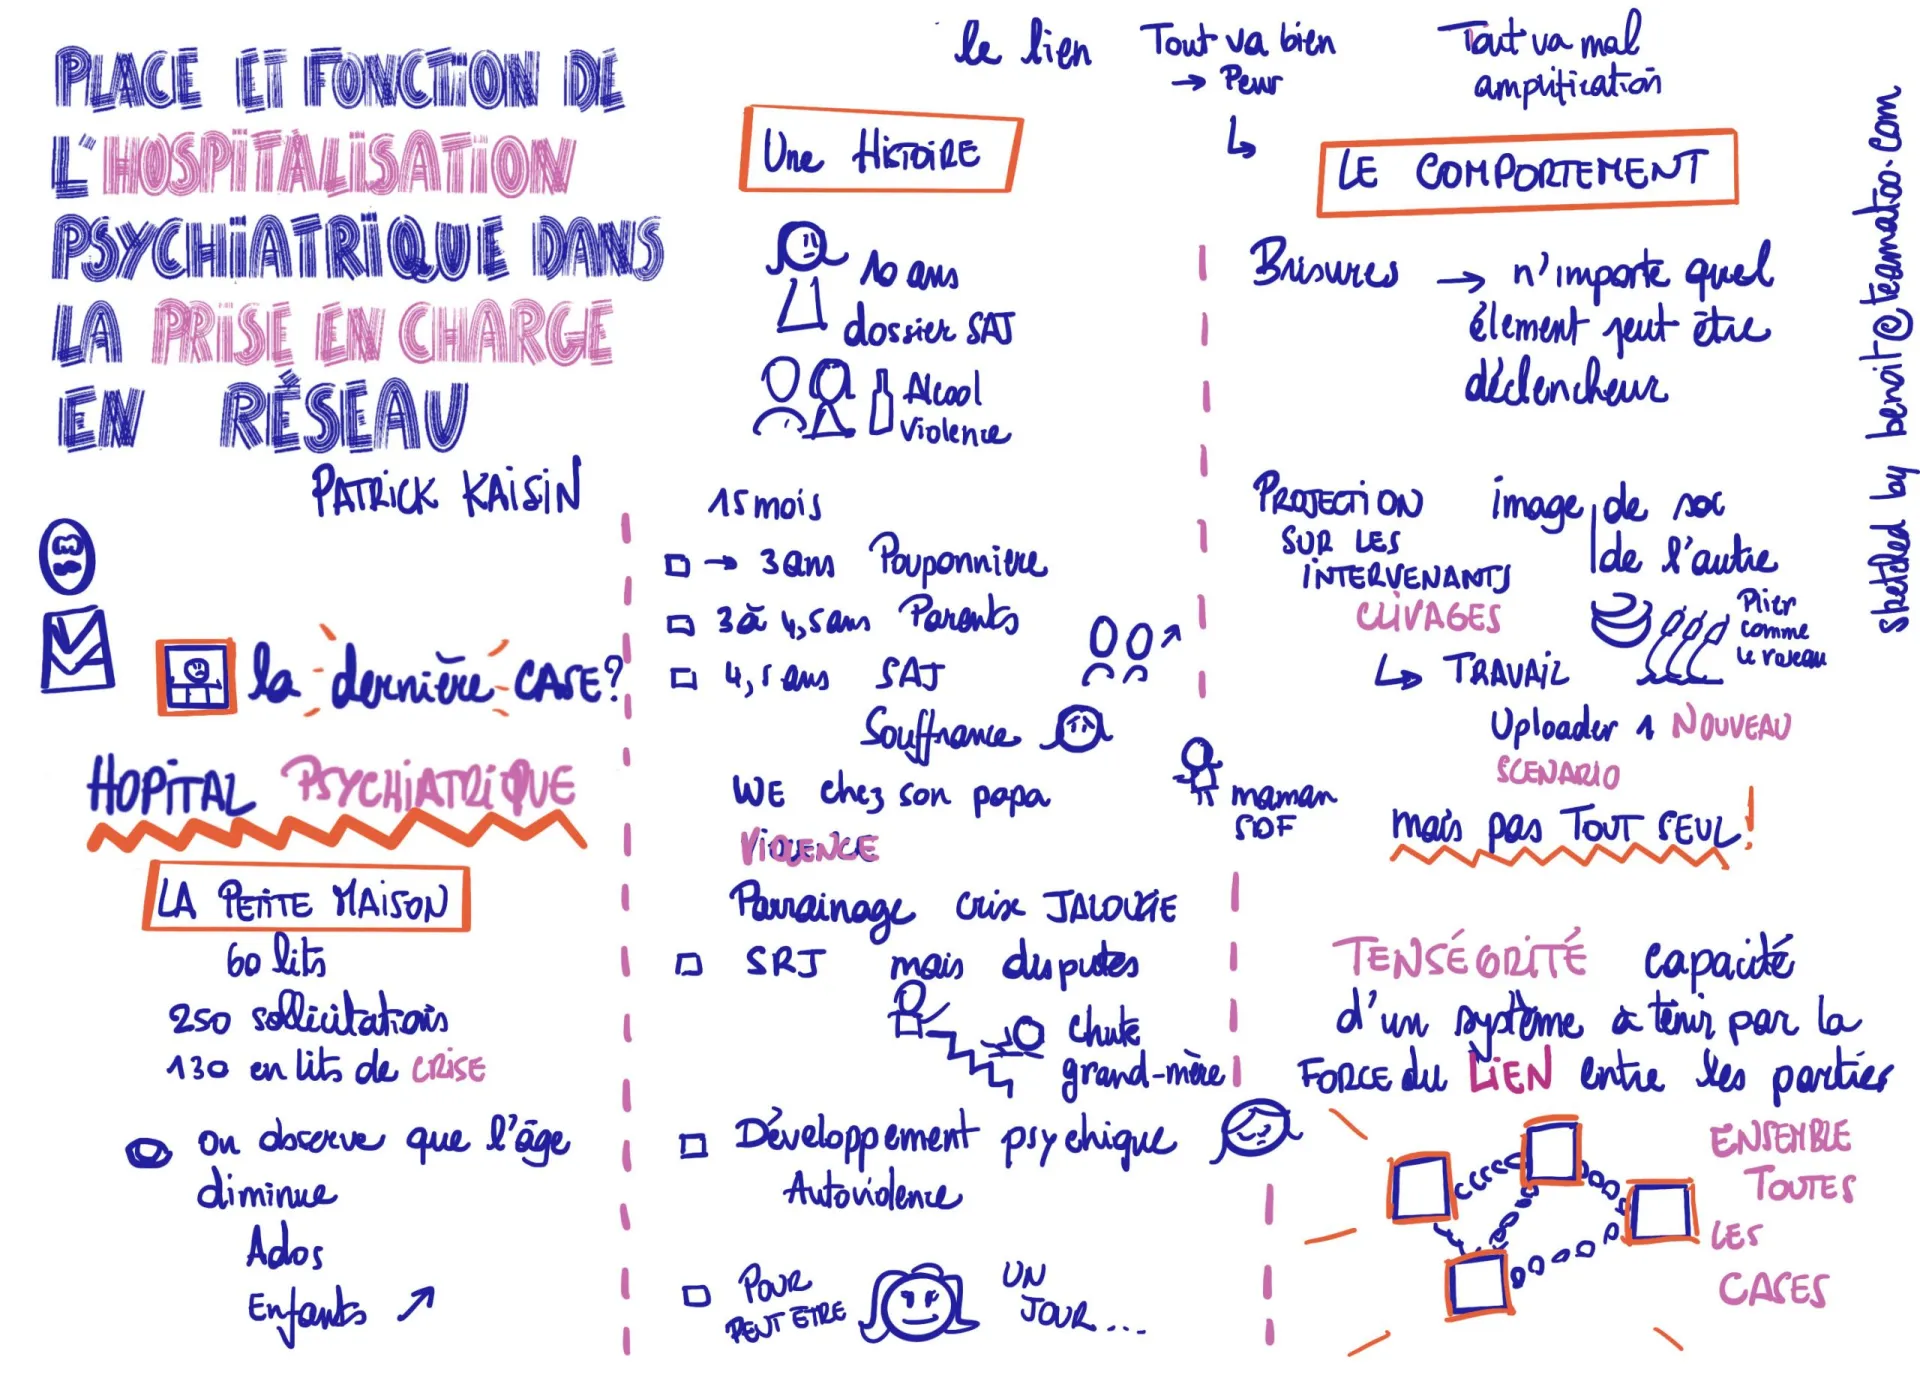 PLACE ET FONCTION DE
L'HOSPITALISATION
PSYCHIATRIQUE DANS
LA PRISE EN CHARGE
EN RÉSEAU
PATRICK KAISIN
la dernière CASE?
HOPITAL PSYCHIATRIQUE
LA PETITE MAISON
60 lits
250 sollicitations
130 en lits de CRISE
on observe que l'âge
diminue
Ados
Enfants ↗
le lien
Une HISTOIRE
10 ans
dossier SAJ
Alcool
Violence
15 mois
→ 3 ans Pouponnière
3 à 4,5 ans Parents
4,5 ans SAJ
Souffrance
WE chez son papa
VIOLENCE
maman
SDF
Parrainage crise JALOUSIE
SRJ mais disputes
chute
grand-mère
Développement psychique
Autoviolence
POUR
PEUT ETRE
UN
JOUR...
Tout va bien
→ Peur
↳
Tout va mal
amplification
LE COMPORTEMENT
Brisures → n'importe quel
élement peut être
déclencheur
PROJECTION
SUR LES
INTERVENANTS
CLIVAGES
image de soi
de l'autre
Plier
comme
le roseau
↳ TRAVAIL
Uploader 1 NOUVEAU
SCENARIO
mais pas TOUT SEUL!
TENSÉGRITÉ capacité
d'un système à tenir par la
FORCE du LIEN entre les parties
ENSEMBLE
TOUTES
LES
CASES
sketched by benoit@teamatoo.com